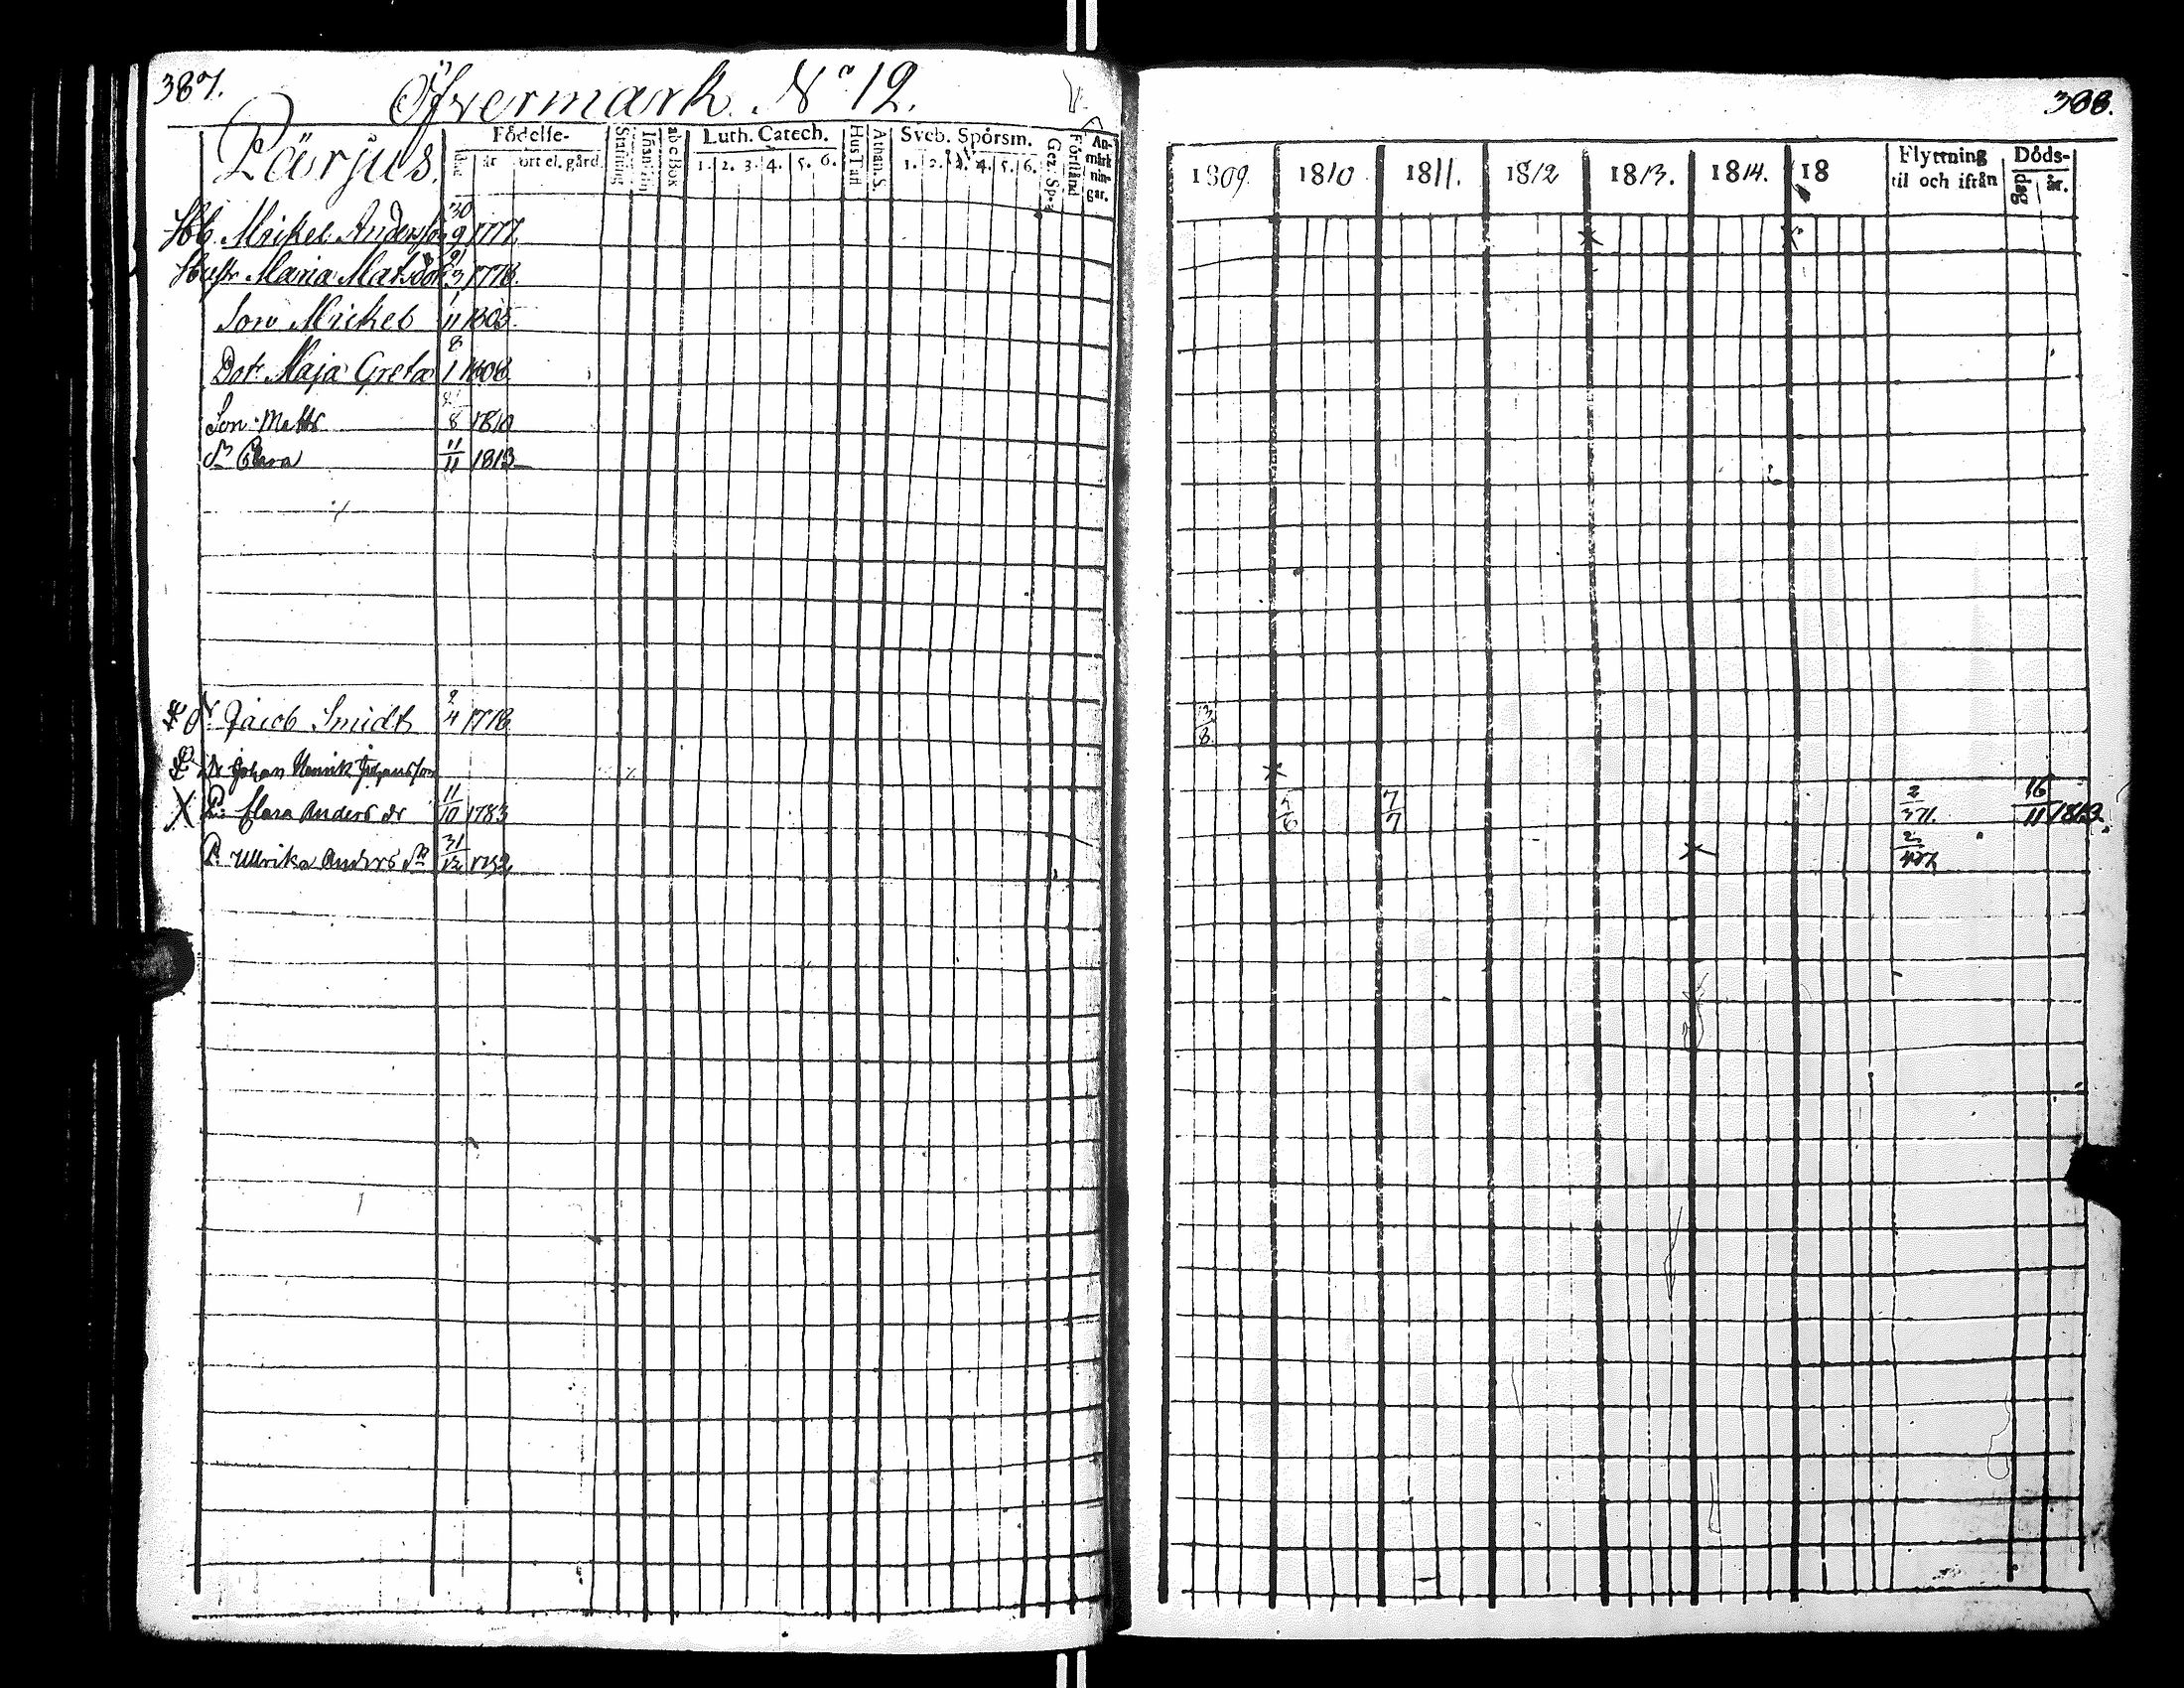 387.
Öfvermark. No 12.
Pärjus.
Födelse-
år
ort el. gård.
abc Bok
Luth. Catech.
1. 2. 3. 4. 5. 6.
Hus Tafl
Athan. S.
Sveb. Spörsm.
1. 2. 3. 4. 5. 6.
Gez. Sp.
Förstånd
Anmärkningar.
Hb. Mickel Andersson 30/9 1777.
Hustr Maria Matsdotr 3 1778.
Son Mickel 1/11 1805.
Dotr Maja Greta 8/1 1808.
Son Matts 8 1810
Dr Clara 11/11 1813
Jacob Smidt 2/4 1778
Dr Johan Henrik Johansson
X P. Clara Anders dr 11/10 1783
P. Ullrika Anders dr 31/12 1792
388.
1809. 1810 1811. 1812 1813. 1814. 18
Flyttning til och ifrån
Döds-
dag
år.
3/8
7/7 2/371. 16/11 1812.
2/427